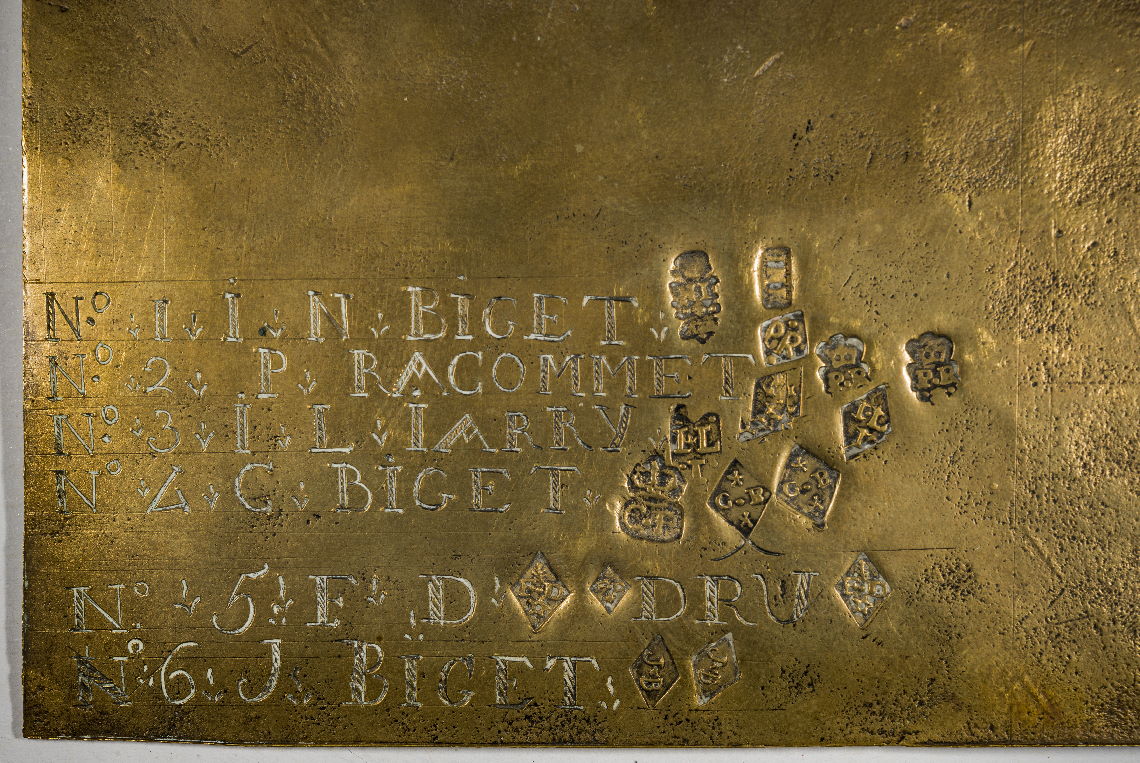 Nº 1 I N BIGET
Nº 2 P RACOMMET
Nº 3 I L IARRY
Nº 4 C BIGET
Nº 5 F D DRU
Nº 6 J BIGET